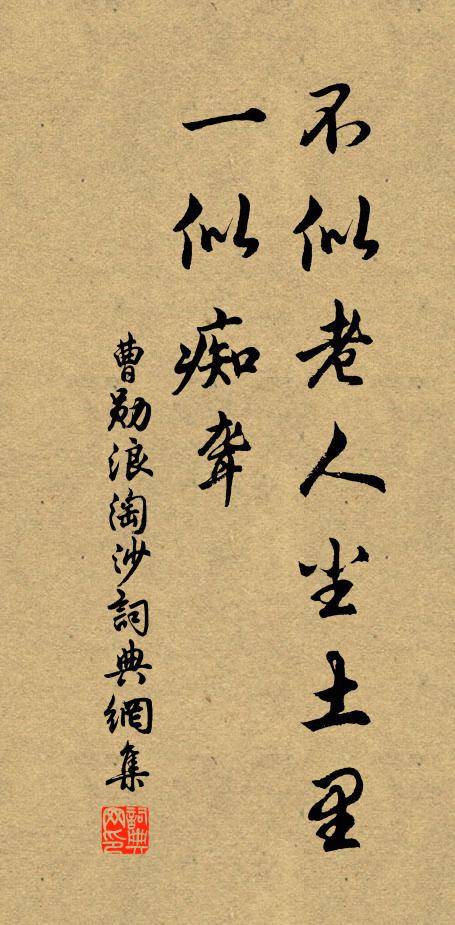 不似老人尘土里
一似痴聋
曹勋浪淘沙詞典網集
詞典网印